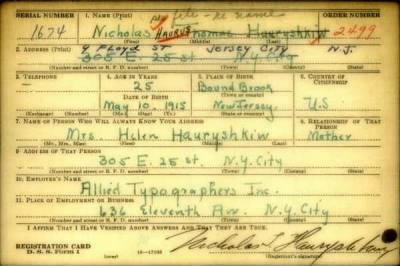 SERIAL NUMBER 1. NAME (Print) ORDER NUMBER
1674 Nicholas HAURYS Thomas Hauryshkiw 2499
(First) (Middle) (Last)
2. ADDRESS (Print) 9 Floyd St Jersey City N.J.
305 E. 25 St N.Y. City
(Number and street or R. F. D. number) (Town) (County) (State)
3. TELEPHONE 4. AGE IN YEARS 5. PLACE OF BIRTH 6. COUNTRY OF CITIZENSHIP
25 Bound Brook
DATE OF BIRTH (Town or county)
May 10, 1915 New Jersey U.S
(Exchange) (Number) (Mo.) (Day) (Yr.) (State or country)
7. NAME OF PERSON WHO WILL ALWAYS KNOW YOUR ADDRESS 8. RELATIONSHIP OF THAT PERSON
Mrs. Helen Hauryshkiw Mother
(Mr., Mrs., Miss) (First) (Middle) (Last)
9. ADDRESS OF THAT PERSON
305 E. 25 st. N.Y. City
(Number and street or R. F. D. number) (Town) (County) (State)
10. EMPLOYER'S NAME
Allied Typographers Inc.
11. PLACE OF EMPLOYMENT OR BUSINESS
636 Eleventh Av. N.Y. City
(Number and street or R. F. D. number) (Town) (County) (State)
I AFFIRM THAT I HAVE VERIFIED ABOVE ANSWERS AND THAT THEY ARE TRUE.
REGISTRATION CARD
D. S. S. Form 1 16—17105 Nicholas T Hauryshkiw